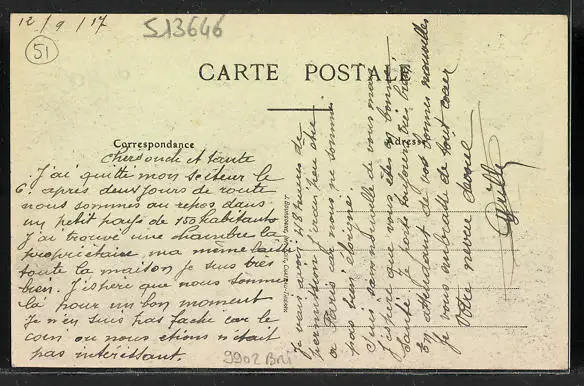 12/9/17
513646
51
CARTE POSTALE
Correspondance
Adresse
Chers oncle et tante
J'ai quitté mon secteur le
6. après deux jours de route
nous sommes au repos dans
un petit pays de 150 habitants
J'ai trouvé une chambre la
propriétaire ma même
toute la maison je suis très
bien. J'espère que nous sommes
là pour un bon moment
Je n'en suis pas faché car le
coin ou nous étions n'était
pas intéréssant.
Je vais avoir 48 heures de
permission j'irai peu être
a Paris car nous ne sommes
pas bien éloigné
Suis sans nouvelle de vous mais
J'espère que vous êtes en bonne
santé. Je suis toujours très bien
En attendant de vos bonnes nouvelles
Je vous embrasse de tout coeur
Votre neveu
9902 Bri